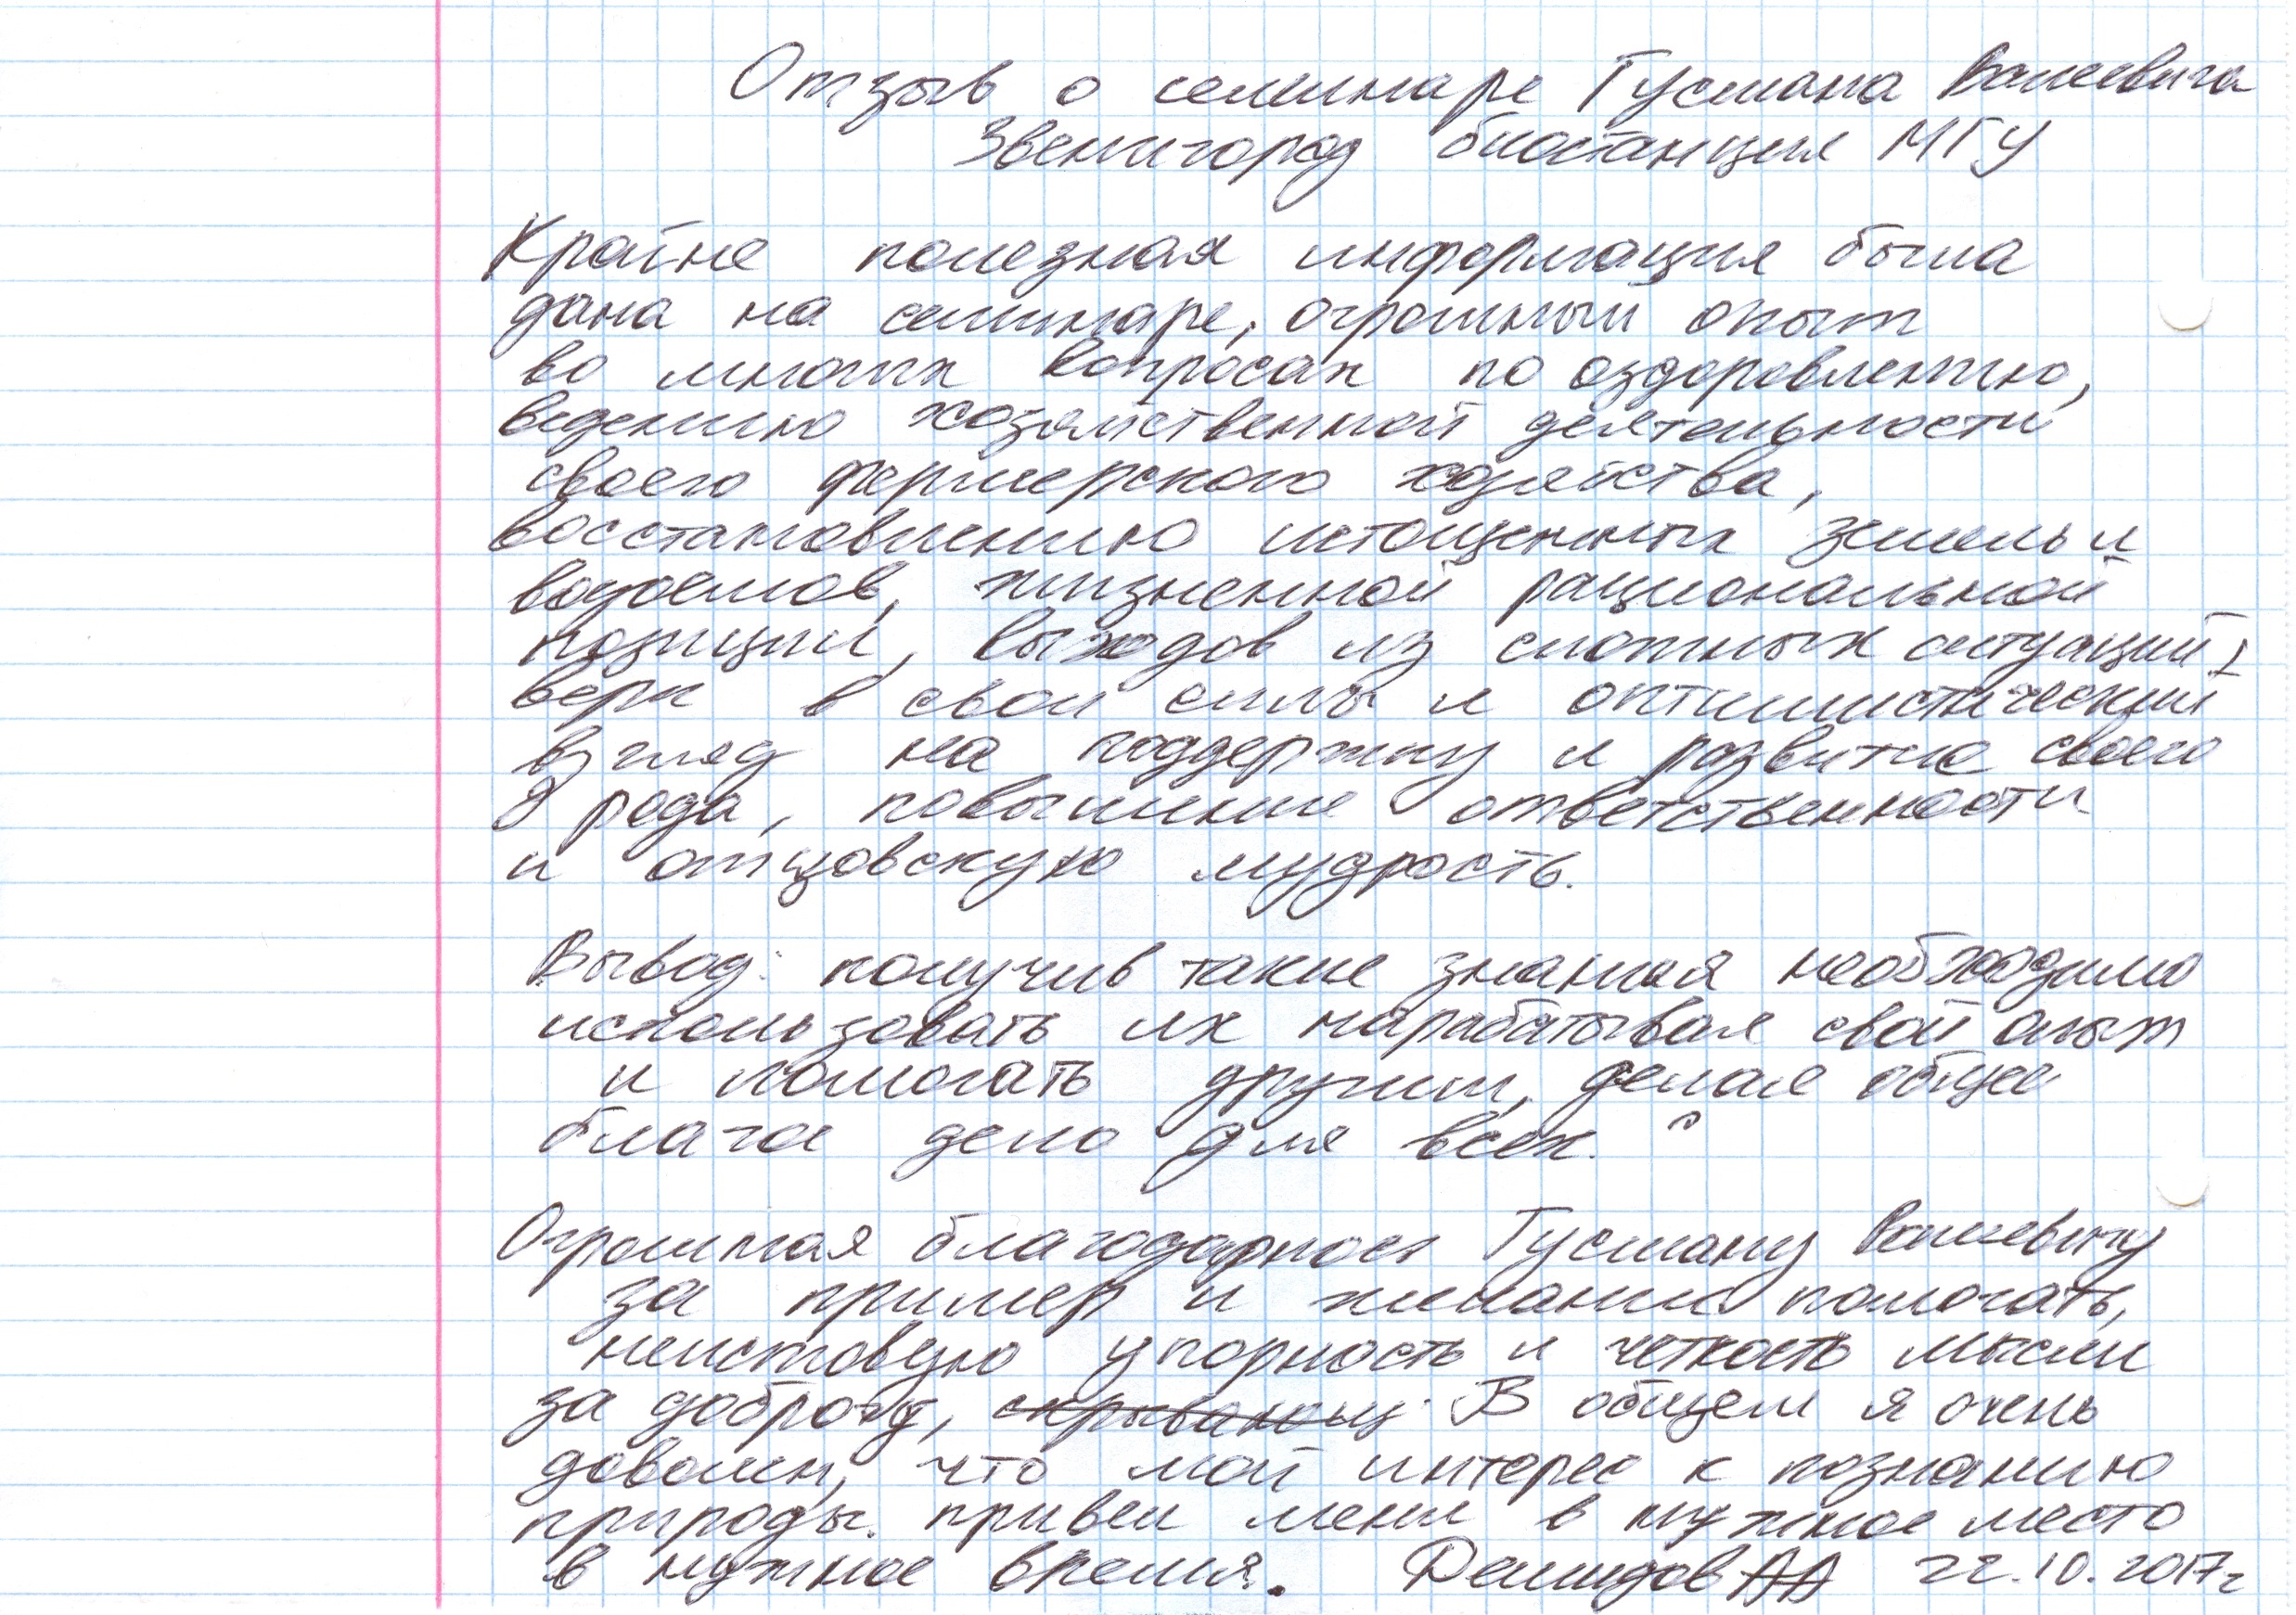 Отзыв о семинаре Гусмана Валеевича
Звенигород биостанция МГУ
Крайне полезная информация была
дана на семинаре, огромный опыт
во многих вопросах по оздоровлению,
ведению хозяйственной деятельности
своего фермерского хозяйства,
восстановлению истощенных земель и
водоемов, жизненной рациональной
позиции, выходов из сложных ситуаций,
веры в свои силы и оптимистический
взгляд на поддержку и развитие своего
рода, повышение ответственности
и отцовскую мудрость.
Вывод: получив такие знания необходимо
использовать их нарабатывая свой опыт
и помогать другим, делая общее
благое дело для всех.
Огромная благодарност Гусману Валеевичу
за пример и желание помогать,
неистовую упорность и четкость мысли
за доброту, В общем я очень
доволен, что мой интерес к познанию
природы привел меня в нужное место
в нужное время. Демидов АА 22.10.2017г